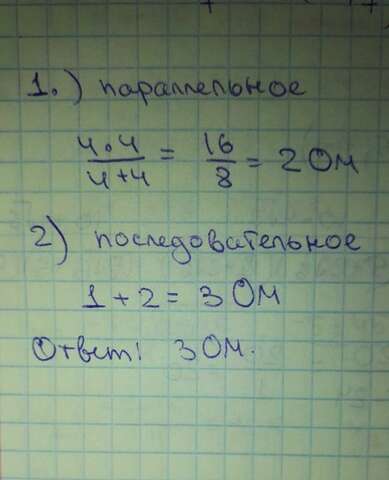 1.) параллельное
4·4/4+4 = 16/8 = 2 Ом
2) последовательное
1 + 2 = 3 Ом
Ответ: 3 Ом.